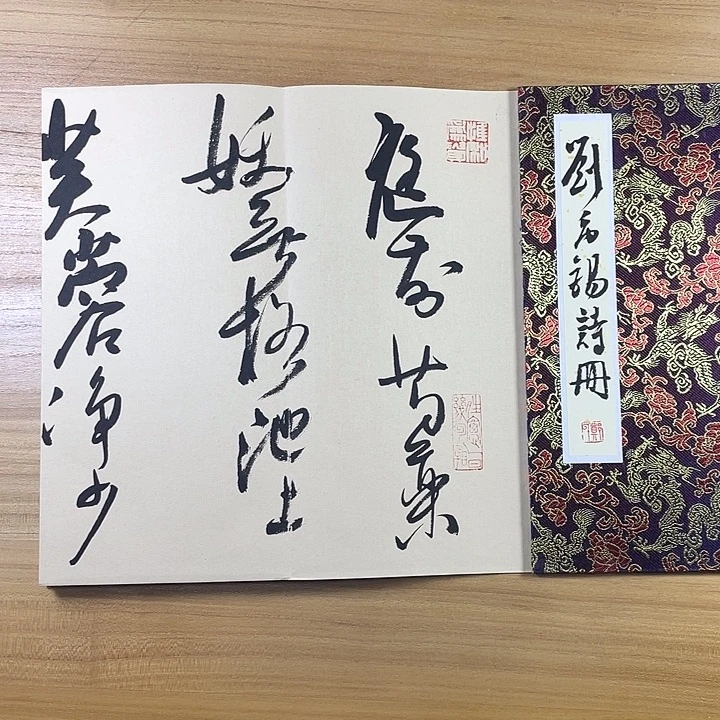 劉禹錫詩冊
庭前芍藥
妖無格池上
芙蓉淨少